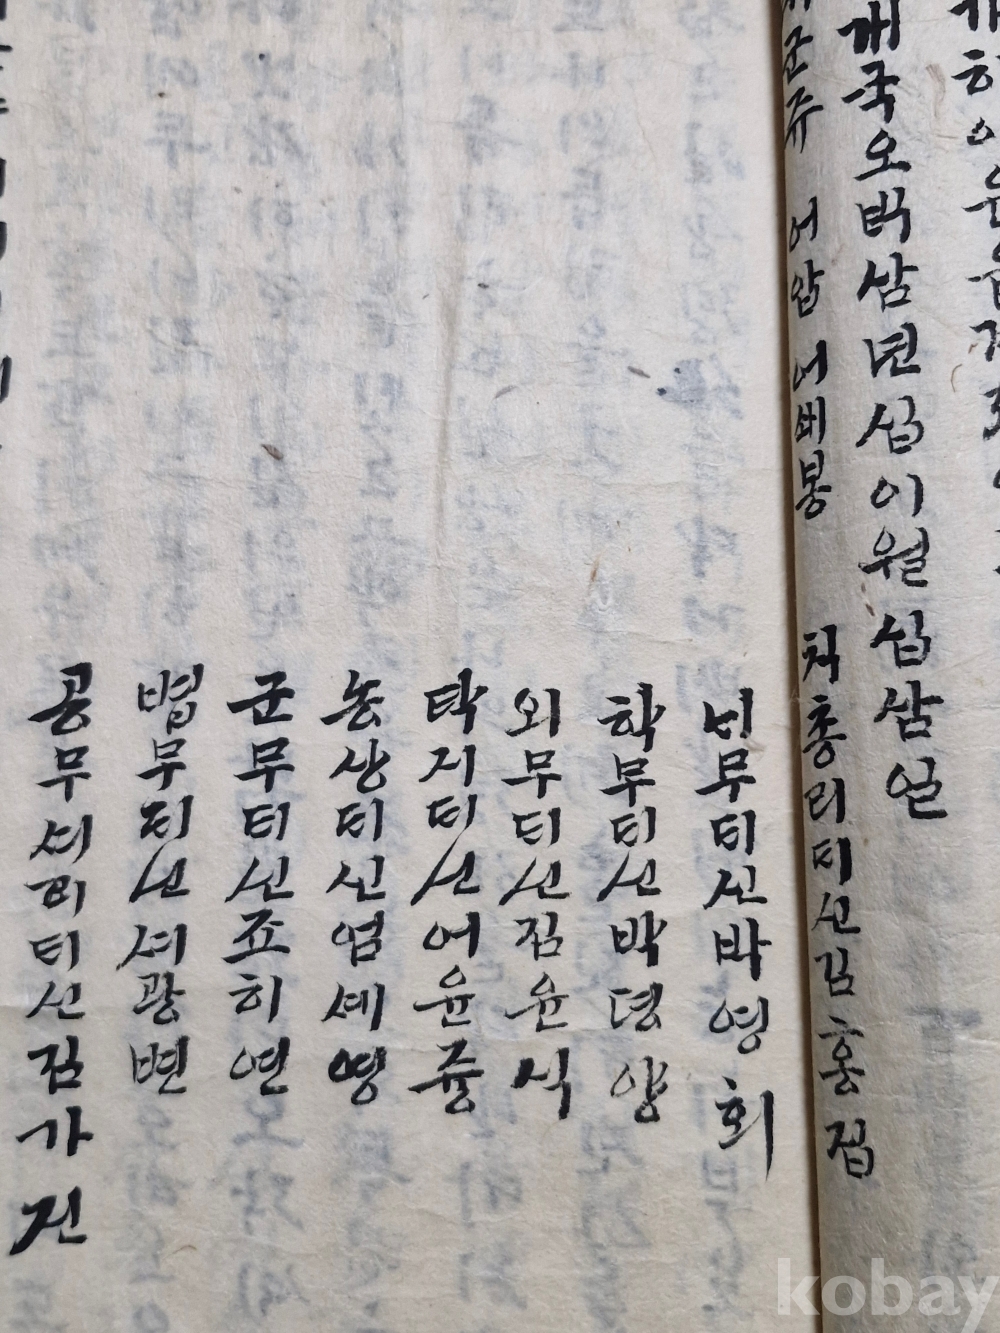 개국오ᄇᆡᆨ삼년십이월십삼일
대군쥬 어압 어ᄉᆡ봉 칙총리ᄃᆡ신김홍집
ᄂᆡ무ᄃᆡ신박영회
학무ᄃᆡ신박뎡양
외무ᄃᆡ신김윤식
탁지ᄃᆡ신어윤즁
농상ᄃᆡ신엄셰영
군무ᄃᆡ신죠히연
법무ᄃᆡ신셔광변
공무셔리ᄃᆡ신김가진
kobay